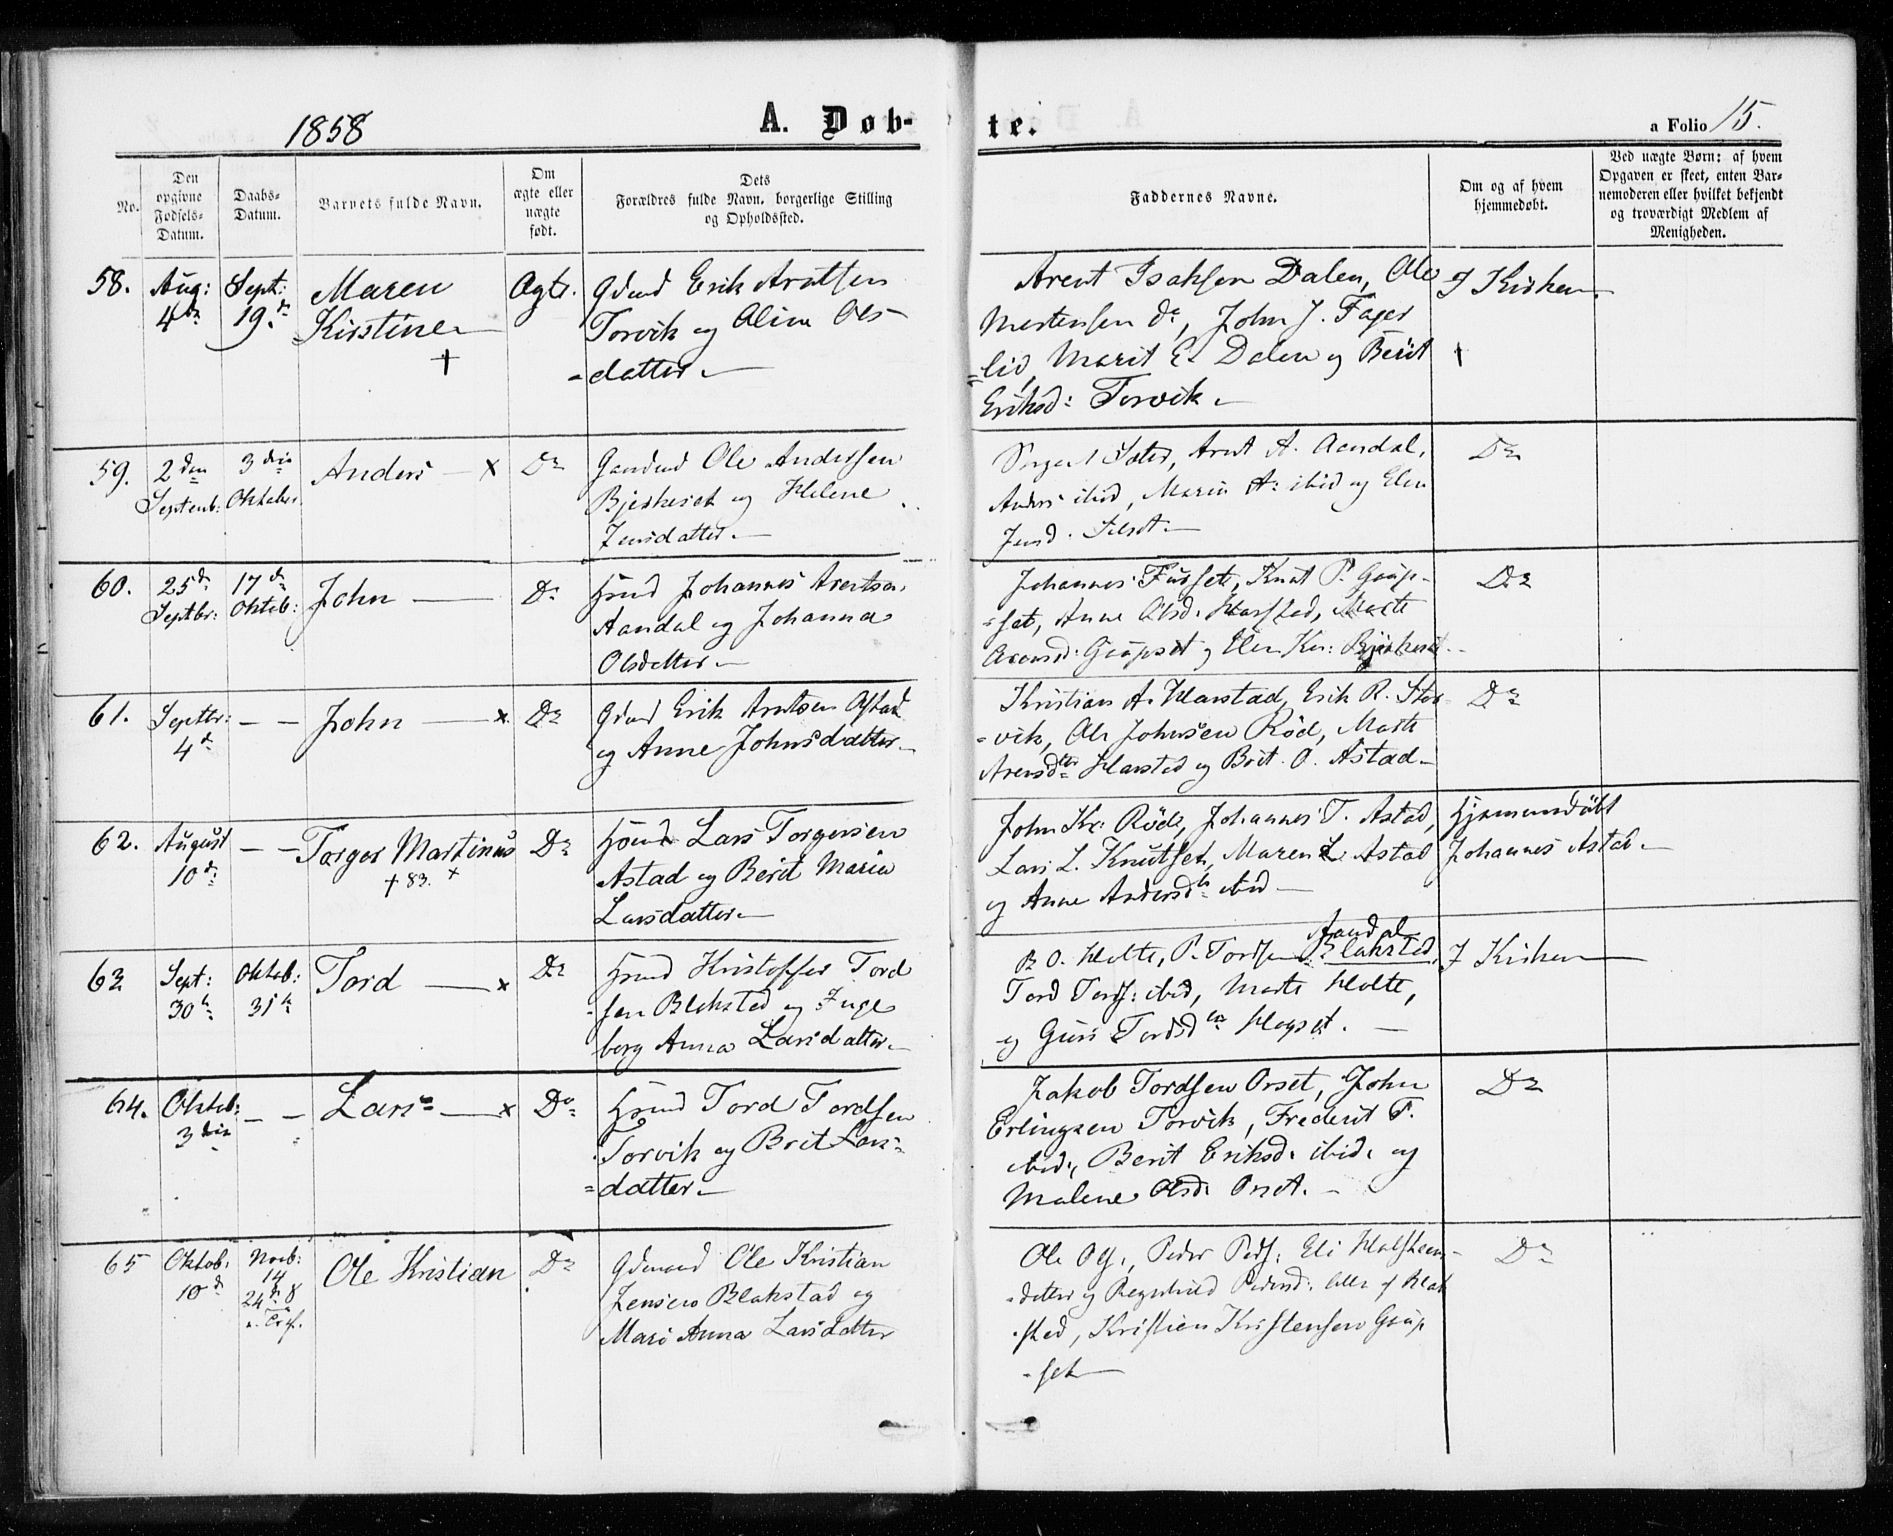 1858
A. Døb-
te.
a Folio 15.
No.
Den opgivne Fødsels-Datum.
Daabs-Datum.
Barnets fulde Navn.
Om ægte eller uægte født.
Dets Forældres fulde Navn, borgerlige Stilling og Opholdssted.
Faddernes Navne.
Om og af hvem hjemmedøbt.
Ved uægte Børn: af hvem Opgaven er skeet, enten Barnemoderen eller hvilket bekjendt og troværdigt Medlem af Menigheden.
58. Aug: Sept: Maren Ægte. Gdmd Erik Arntsen
4de 19.de Kirstine Torvik og Oline Ols
+ -datter.
Arent Isaksen Dalen, Ole
Mortensen do, John J. Fager
=lid, Marit E. Dalen og Berit
Eriksd: Torvik.
I Kirken
59. 2den 3die Anders x Do Gaardmd Ole Andersen
Septemb: Oktober Bjerkeset og Helene
Jensdatter.
Arnt A. Aandal,
Anders ibid, Maren A: ibid og Elen
Jensd.
Do
60. 25de 17de John Do Hsmd Johannes Arentsen
Septbr: Oktob: Aandal og Johanna
Olsdatter.
Johannes Furset, Knut P. Gaup-
-set, Anne Olsd. Harstad, Marte
Arensd: Gaupset og Elen Kr: Bjerkeset
Do
61. Septbr: — — John x Do Gdmd Erik Arntsen Astad
4de og Anne Johnsdatter
Kristian A. Harstad, Erik R. Stor
-vik, Ole Johnsen Röd, Marte
Arensdtr Harstad og Brit O. Astad
Do
62. August — — Torger Martinus Do Hsmd Lars Torgersen
10de + 83. + Astad og Berit Maria
Larsdatter.
John Kr: Röd, Johannes T. Astad,
Lars L. Knutset, Maren L. Astad
og Anne Andersdtr ibid
Hjemmedøbt
Johannes Astad.
63 Sept: Oktob: Tord x Do Hsmd Kristoffer Tord
30te 31te -sen Blakstad og Inge
borg Anna Larsdatter.
Aandal
B O. Holte, P. Tordsen Blakstad,
Tord Tords: ibid, Marte Holte,
og Guri Tordsdtr Hogset.
I Kirken
64. Oktob: — — Lars x Do Hsmd Tord Tordsen
3die Torvik og Brit Lars=
=datter.
Jakob Tordsen Orset, John
Erlingsen Torvik, Frederik T.
ibid, Berit Eriksd. ibid. og
Malene Olsd. Orset.
Do
65 Oktob: Novb: Ole Kristian Do Gdmand Ole Kristian
10de 14 Jensen Blakstad og
24de 8 Mari Anna Larsdatter
Ole Ols:, Peder Peds: Eli Halsteen-
-datter og Ragnhild Pedersd: alle af Blak
-sted, Kristian Kristensen Gaup
-set
Do